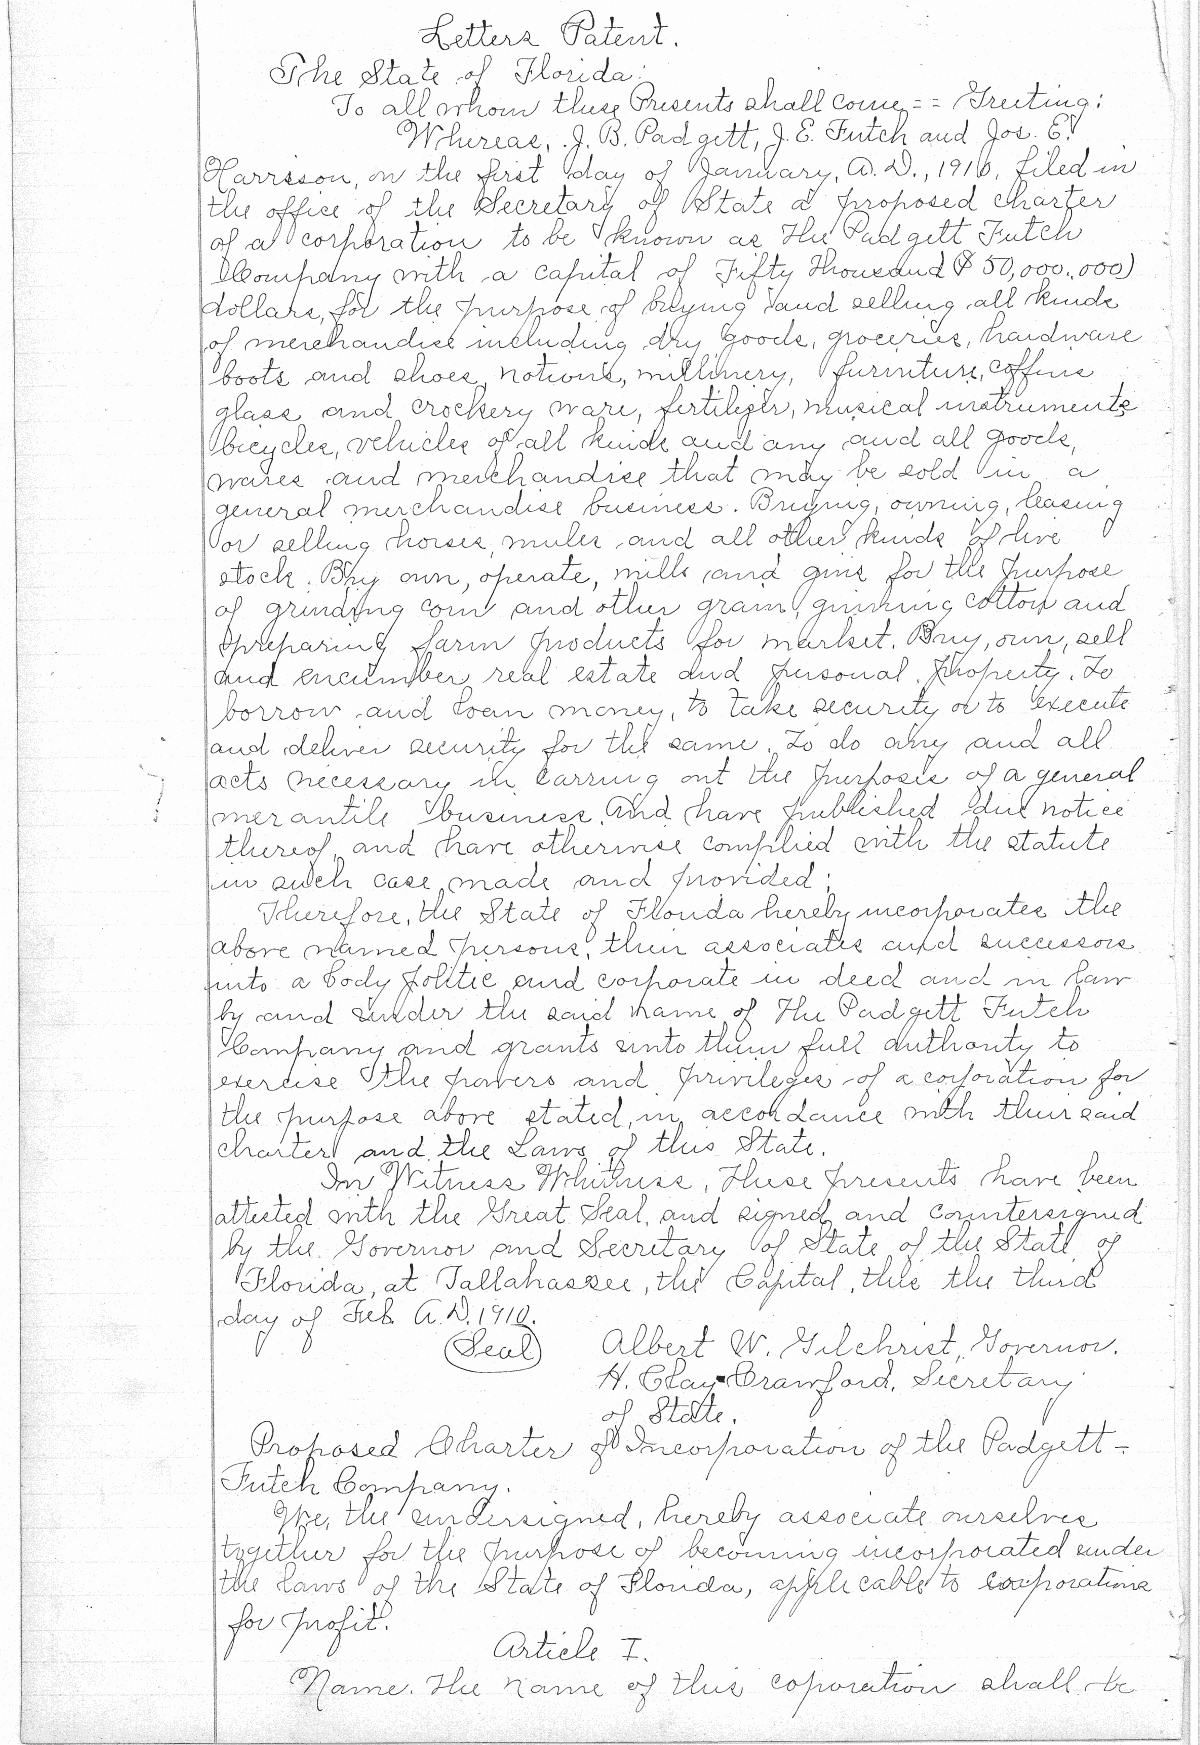 Letters Patent.
The State of Florida:
To all whom these Presents shall come == Greeting:
Whereas, J. B. Padgett, J. E. Futch and Jos. E.
Harrison, on the first day of January, A.D., 1910, filed in
the office of the Secretary of State a proposed charter
of a corporation to be known as The Padgett Futch
Company with a capital of Fifty Thousand ($50,000.,000)
dollars, for the purpose of buying and selling all kinds
of merchandise including dry goods, groceries, hardware
boots and shoes, notions, millinery, furniture, coffins
glass and crockery ware, fertilizer, musical instruments
bicycles, vehicles of all kinds and any and all goods,
wares and merchandise that may be sold in a
general merchandise business. Buying, owning, leasing
or selling horses, mules and all other kinds of live
stock. Buy own, operate, mills and gins for the purpose
of grinding corn and other grain, ginning cotton and
preparing farm products for market. Buy, own, sell
and encumber real estate and personal property. To
borrow and loan money, to take security or to execute
and deliver security for the same. To do any and all
acts necessary in carring out the purposes of a general
mercantile business. And have published due notice
thereof, and have otherwise complied with the statute
in such case made and provided;
Therefore, the State of Florida hereby incorporates the
above named persons, their associates and successors
into a body politic and corporate in deed and in law
by and under the said name of The Padgett Futch
Company and grants unto them full authority to
exercise the powers and privileges of a corporation for
the purpose above stated, in accordance with their said
charter and the Laws of this State.
In Witness Whitness, these presents have been
attested with the Great Seal, and signed and countersigned
by the Governor and Secretary of State of the State of
Florida, at Tallahassee, the Capital, this the third
day of Feb. A.D. 1910.
(Seal) Albert W. Gilchrist, Governor.
H. Clay Crawford, Secretary
of State.
Proposed Charter of Incorporation of the Padgett-
Futch Company.
We, the undersigned, hereby associate ourselves
together for the purpose of becoming incorporated under
the laws of the State of Florida, applicable to corporations
for profit.
Article I.
Name. The name of this coporation shall be